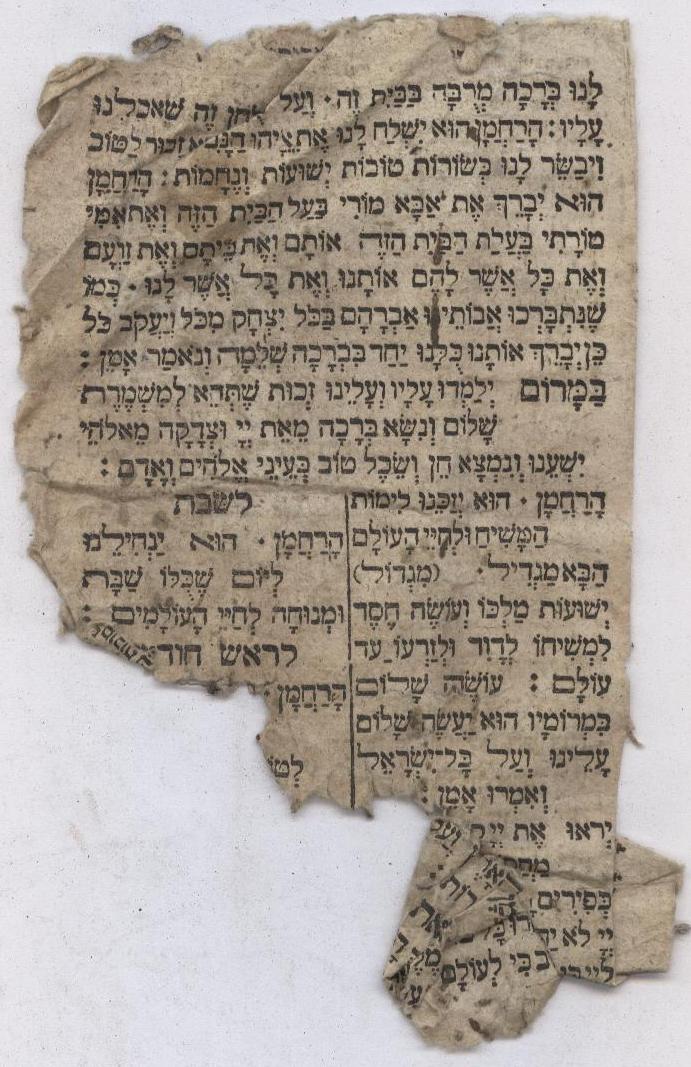 לָנוּ בְּרָכָה מְרֻבָּה בַּבַּיִת זֶה. וְעַל זֶה שֶׁאָכַלְנוּ
עָלָיו: הָרַחֲמָן הוּא יִשְׁלַח לָנוּ אֶת זָכוּר לַטּוֹב
וִיבַשֵּׂר לָנוּ בְּשׂוֹרוֹת טוֹבוֹת יְשׁוּעוֹת וְנֶחָמוֹת: הָרַחֲמָן
הוּא יְבָרֵךְ אֶת אַבָּא מוֹרִי בַּעַל הַבַּיִת הַזֶּה וְאֶת אִמִּי
מוֹרָתִי בַּעֲלַת הַבַּיִת הַזֶּה אוֹתָם וְאֶת בֵּיתָם וְאֶת זַרְעָם
וְאֶת כָּל אֲשֶׁר לָהֶם אוֹתָנוּ וְאֶת כָּל אֲשֶׁר לָנוּ. כְּמוֹ
שֶׁנִּתְבָּרְכוּ אֲבוֹתֵינוּ אַבְרָהָם בַּכֹּל יִצְחָק מִכֹּל וְיַעֲקֹב כֹּל
כֵּן יְבָרֵךְ אוֹתָנוּ כֻּלָּנוּ יַחַד בִּבְרָכָה שְׁלֵמָה וְנֹאמַר אָמֵן:
בַּמָּרוֹם יְלַמְּדוּ עָלָיו וְעָלֵינוּ זְכוּת שֶׁתְּהֵא לְמִשְׁמֶרֶת
שָׁלוֹם וְנִשָּׂא בְרָכָה מֵאֵת יְיָ וּצְדָקָה מֵאלֹהֵי
יִשְׁעֵנוּ וְנִמְצָא חֵן וְשֵׂכֶל טוֹב בְּעֵינֵי אֱלֹהִים וְאָדָם:
הָרַחֲמָן. הוּא יְזַכֵּנוּ לִימוֹת
הַמָּשִׁיחַ וּלְחַיֵּי הָעוֹלָם
הַבָּא מַגְדִּיל. (מִגְדּוֹל)
יְשׁוּעוֹת מַלְכּוֹ וְעוֹשֶׂה חֶסֶד
לִמְשִׁיחוֹ לְדָוִד וּלְזַרְעוֹ עַד
עוֹלָם: עוֹשֶׂה שָׁלוֹם
בִּמְרוֹמָיו הוּא יַעֲשֶׂה שָׁלוֹם
עָלֵינוּ וְעַל כָּל יִשְׂרָאֵל
וְאִמְרוּ אָמֵן:
יְראוּ אֶת יְיָ
כְּפִירִים
יְיָ לֹא
לַייָ כִּי לְעוֹלָם
לשבת
הָרַחֲמָן. הוּא יַנְחִילֵנוּ
לְיוֹם שֶׁכֻּלּוֹ שַׁבָּת
וּמְנוּחָה לְחַיֵּי הָעוֹלָמִים:
לראש חודש
הָרַחֲמָן.